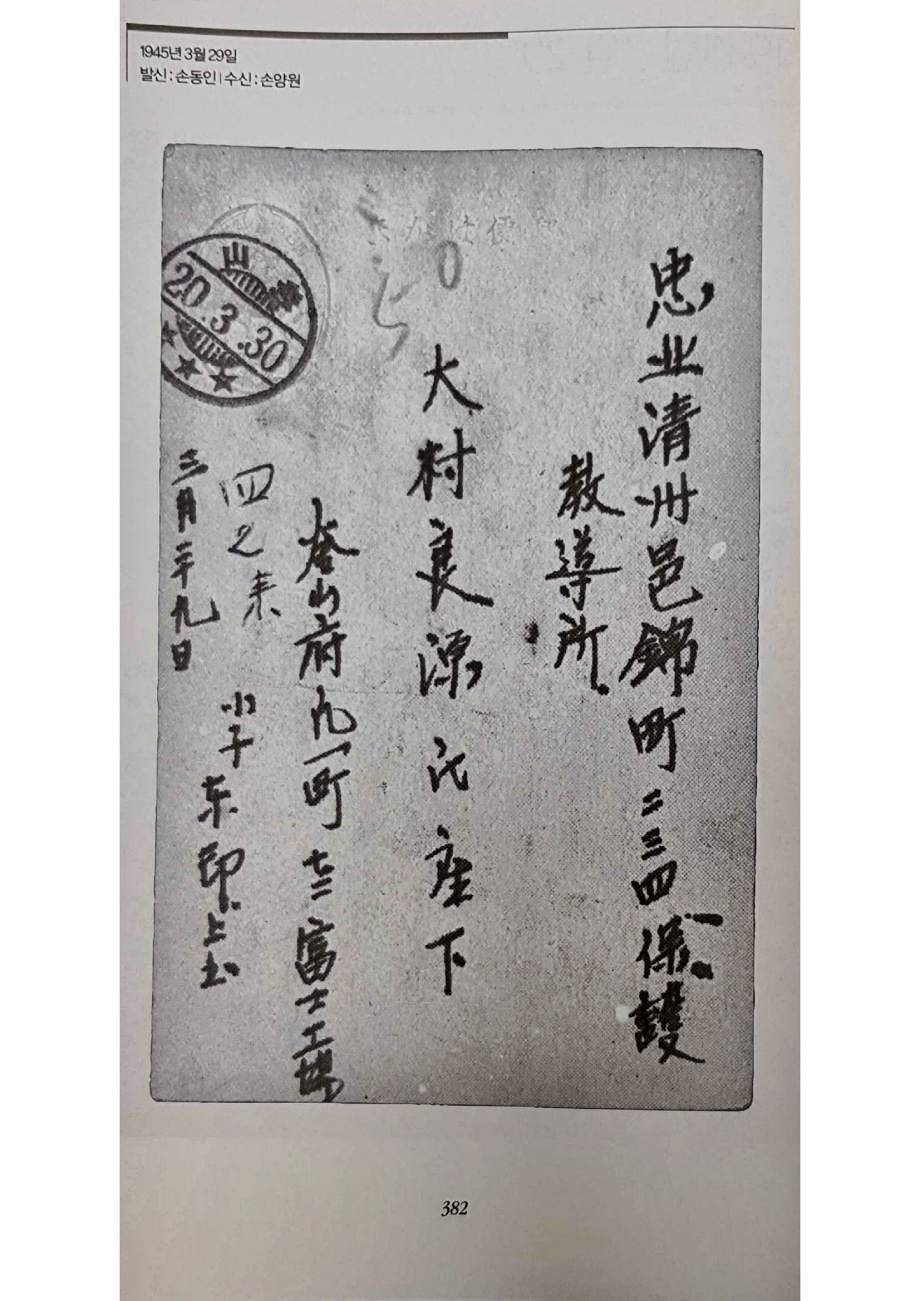 1945년 3월 29일
발신 : 손동인 | 수신 : 손양원
忠北清州邑錦町二三四保護
教導所
大村良源氏座下
釜山府凡一町七二富士工場
小子东印上書
三月二十九日
釜山
20.3.30
382